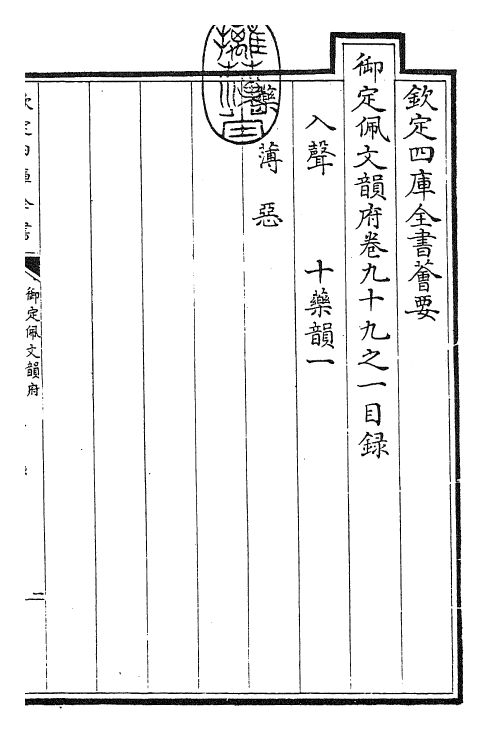 欽定四庫全書薈要
御定佩文韻府卷九十九之一目録
入聲 十藥韻一
藥 薄 惡
御定佩文韻府
二